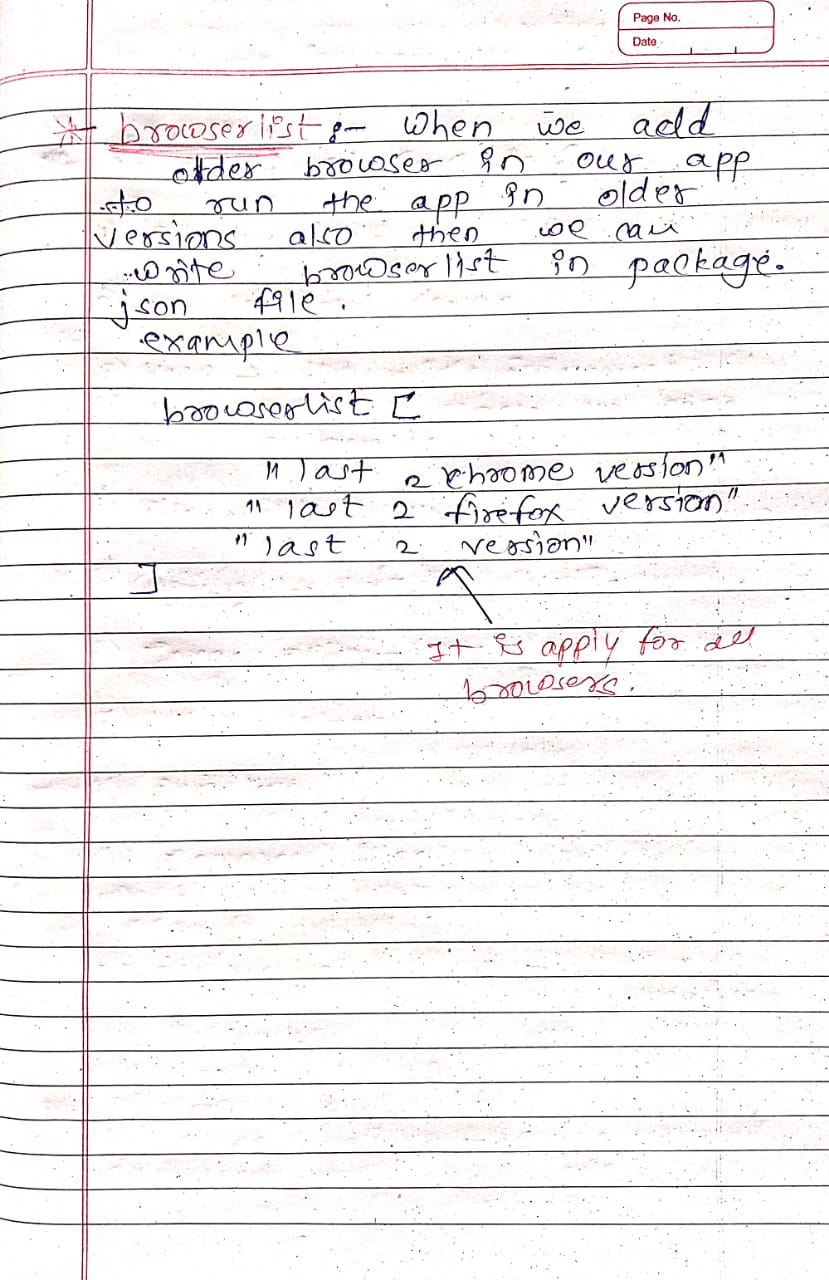 Page No.
Date
* browserlist :- When we add
older browser in our app
to run the app in older
versions also then we can
write browserlist in package.
json file.
example
browserlist [
"last 2 chrome version"
"last 2 firefox version"
"last 2 version"
]
It is apply for all
browsers.